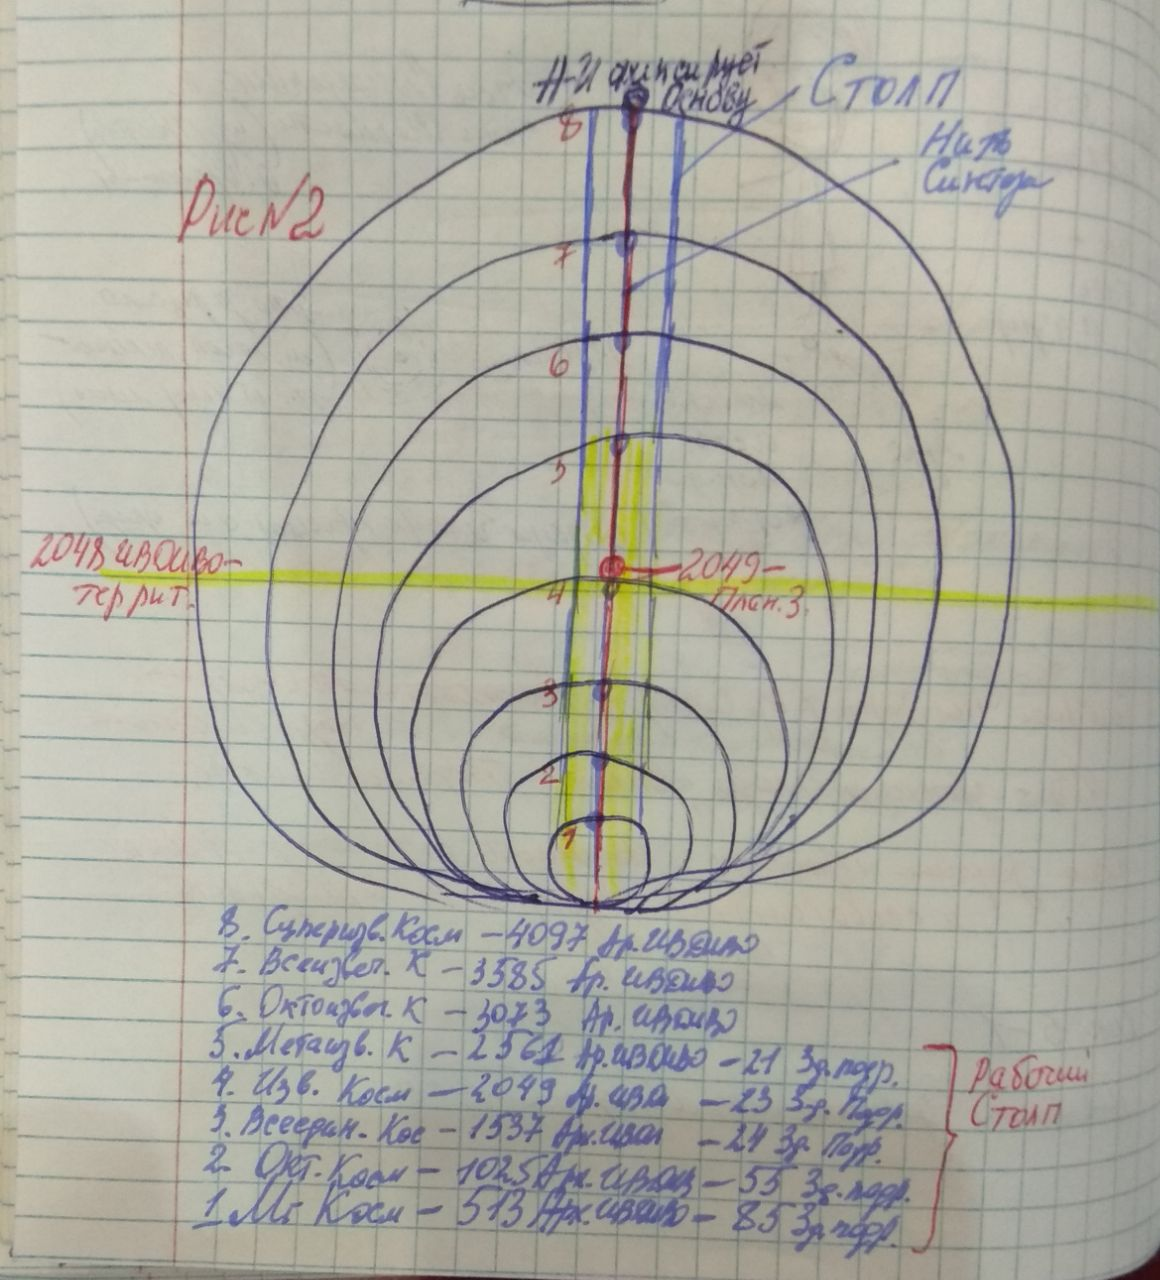 А-И фиксирует
основу
Столп
Нить
Синтеза
Рис№2
8
7
6
5
2048 ИВДИВО-
террит.
2049-
План.З.
4
3
2
1
8. Суперизв. Косм - 4097 Ар. ИВДИВО
7. Всеизвеч. К - 3585 Ар. ИВДИВО
6. Октоизвеч. К - 3073 Ар. ИВДИВО
5. Метаизв. К - 2561 Ар. ИВДИВО - 21 Зд. подр.
4. Изв. Косм - 2049 Ар. - 23 Зд. Подр.
3. Всеедин. Кос - 1537 Арх. - 24 Зд. Подр.
2. Окт. Косм - 1025 Арх. - 55 Зд. подр.
1. Мг Косм - 513 Арх. ИВДИВО - 85 Зд. подр.
Рабочий
Столп